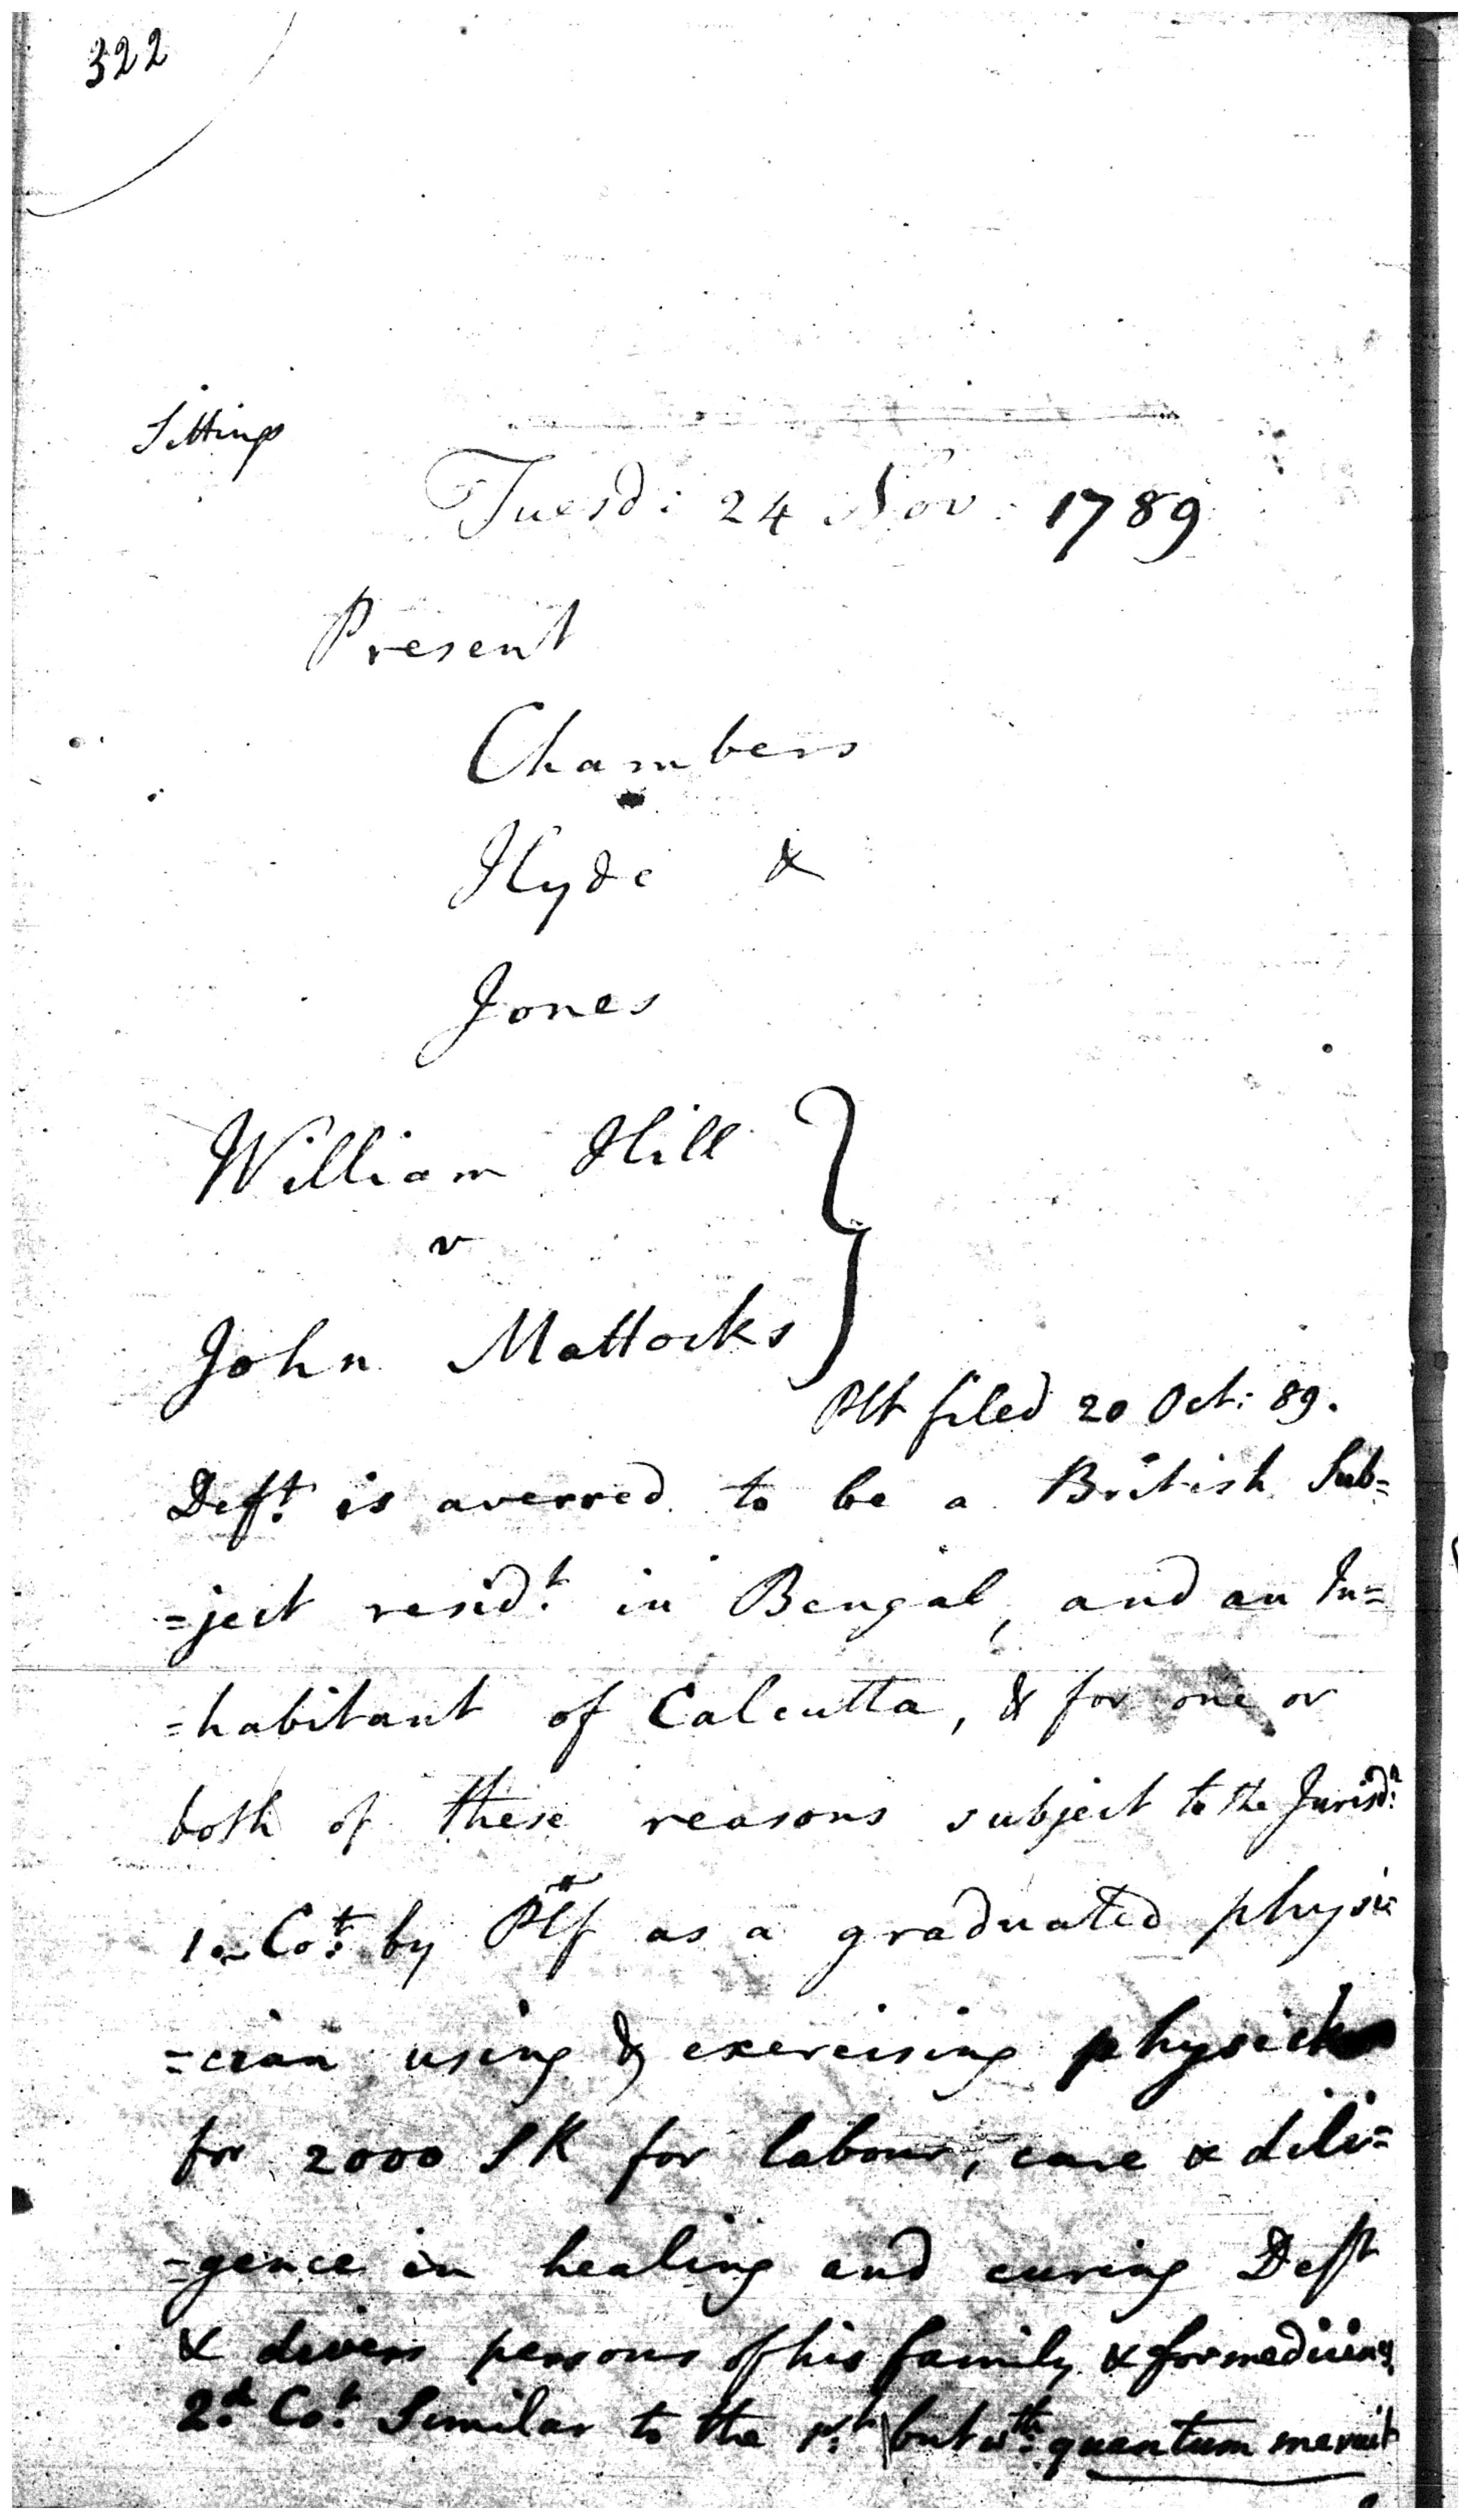 322
Sittings
Tuesd: 24 Nov: 1789
Present
Chambers
Hyde &
Jones
William Hill
v
John Mattocks
Plt filed 20 Oct: 89.
Deft. is averred to be a British Sub=
=ject residt. in Bengal, and an In=
=habitant of Calcutta, & for one or
both of these reasons subject to the Jurisdn.
Cot. by Plff as a graduated physi=
=cian using & exercising physick
for 2000 SR for labour, care & dili=
=gence in healing and curing Deft
& divers persons of his family & for medicines
2d. Cot. Similar to the 1st. but wth. quantum meruit